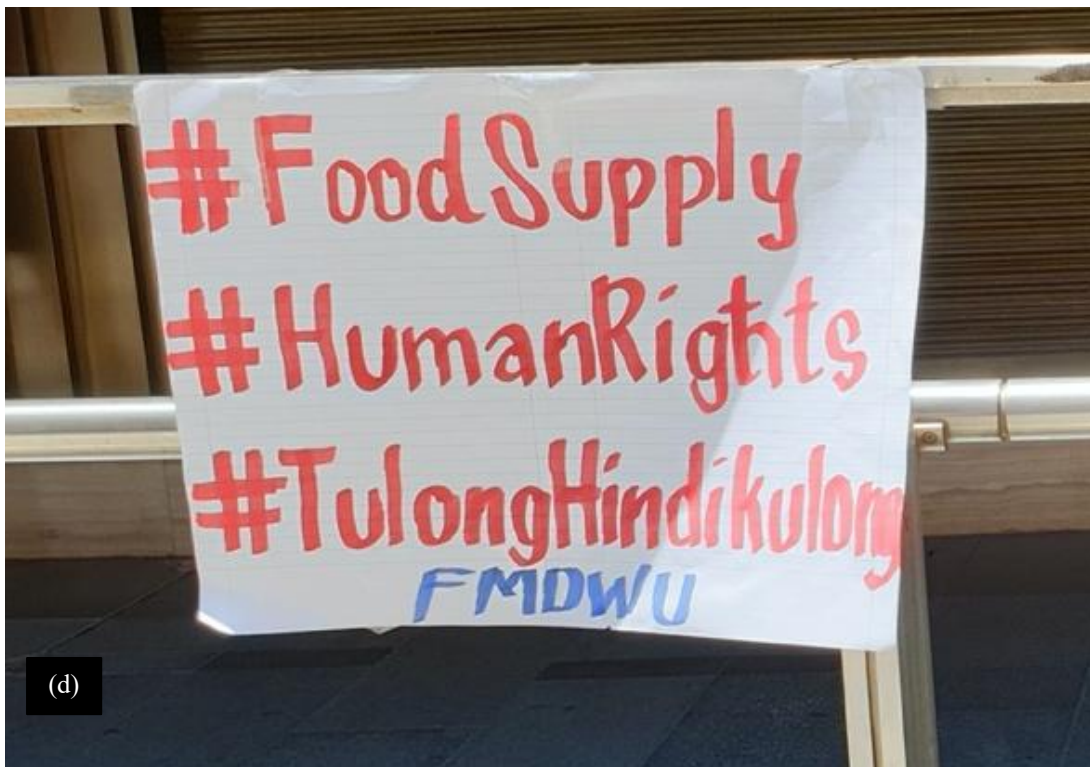 #FoodSupply
#HumanRights
#TulongHindikulong
FMDWU
(d)